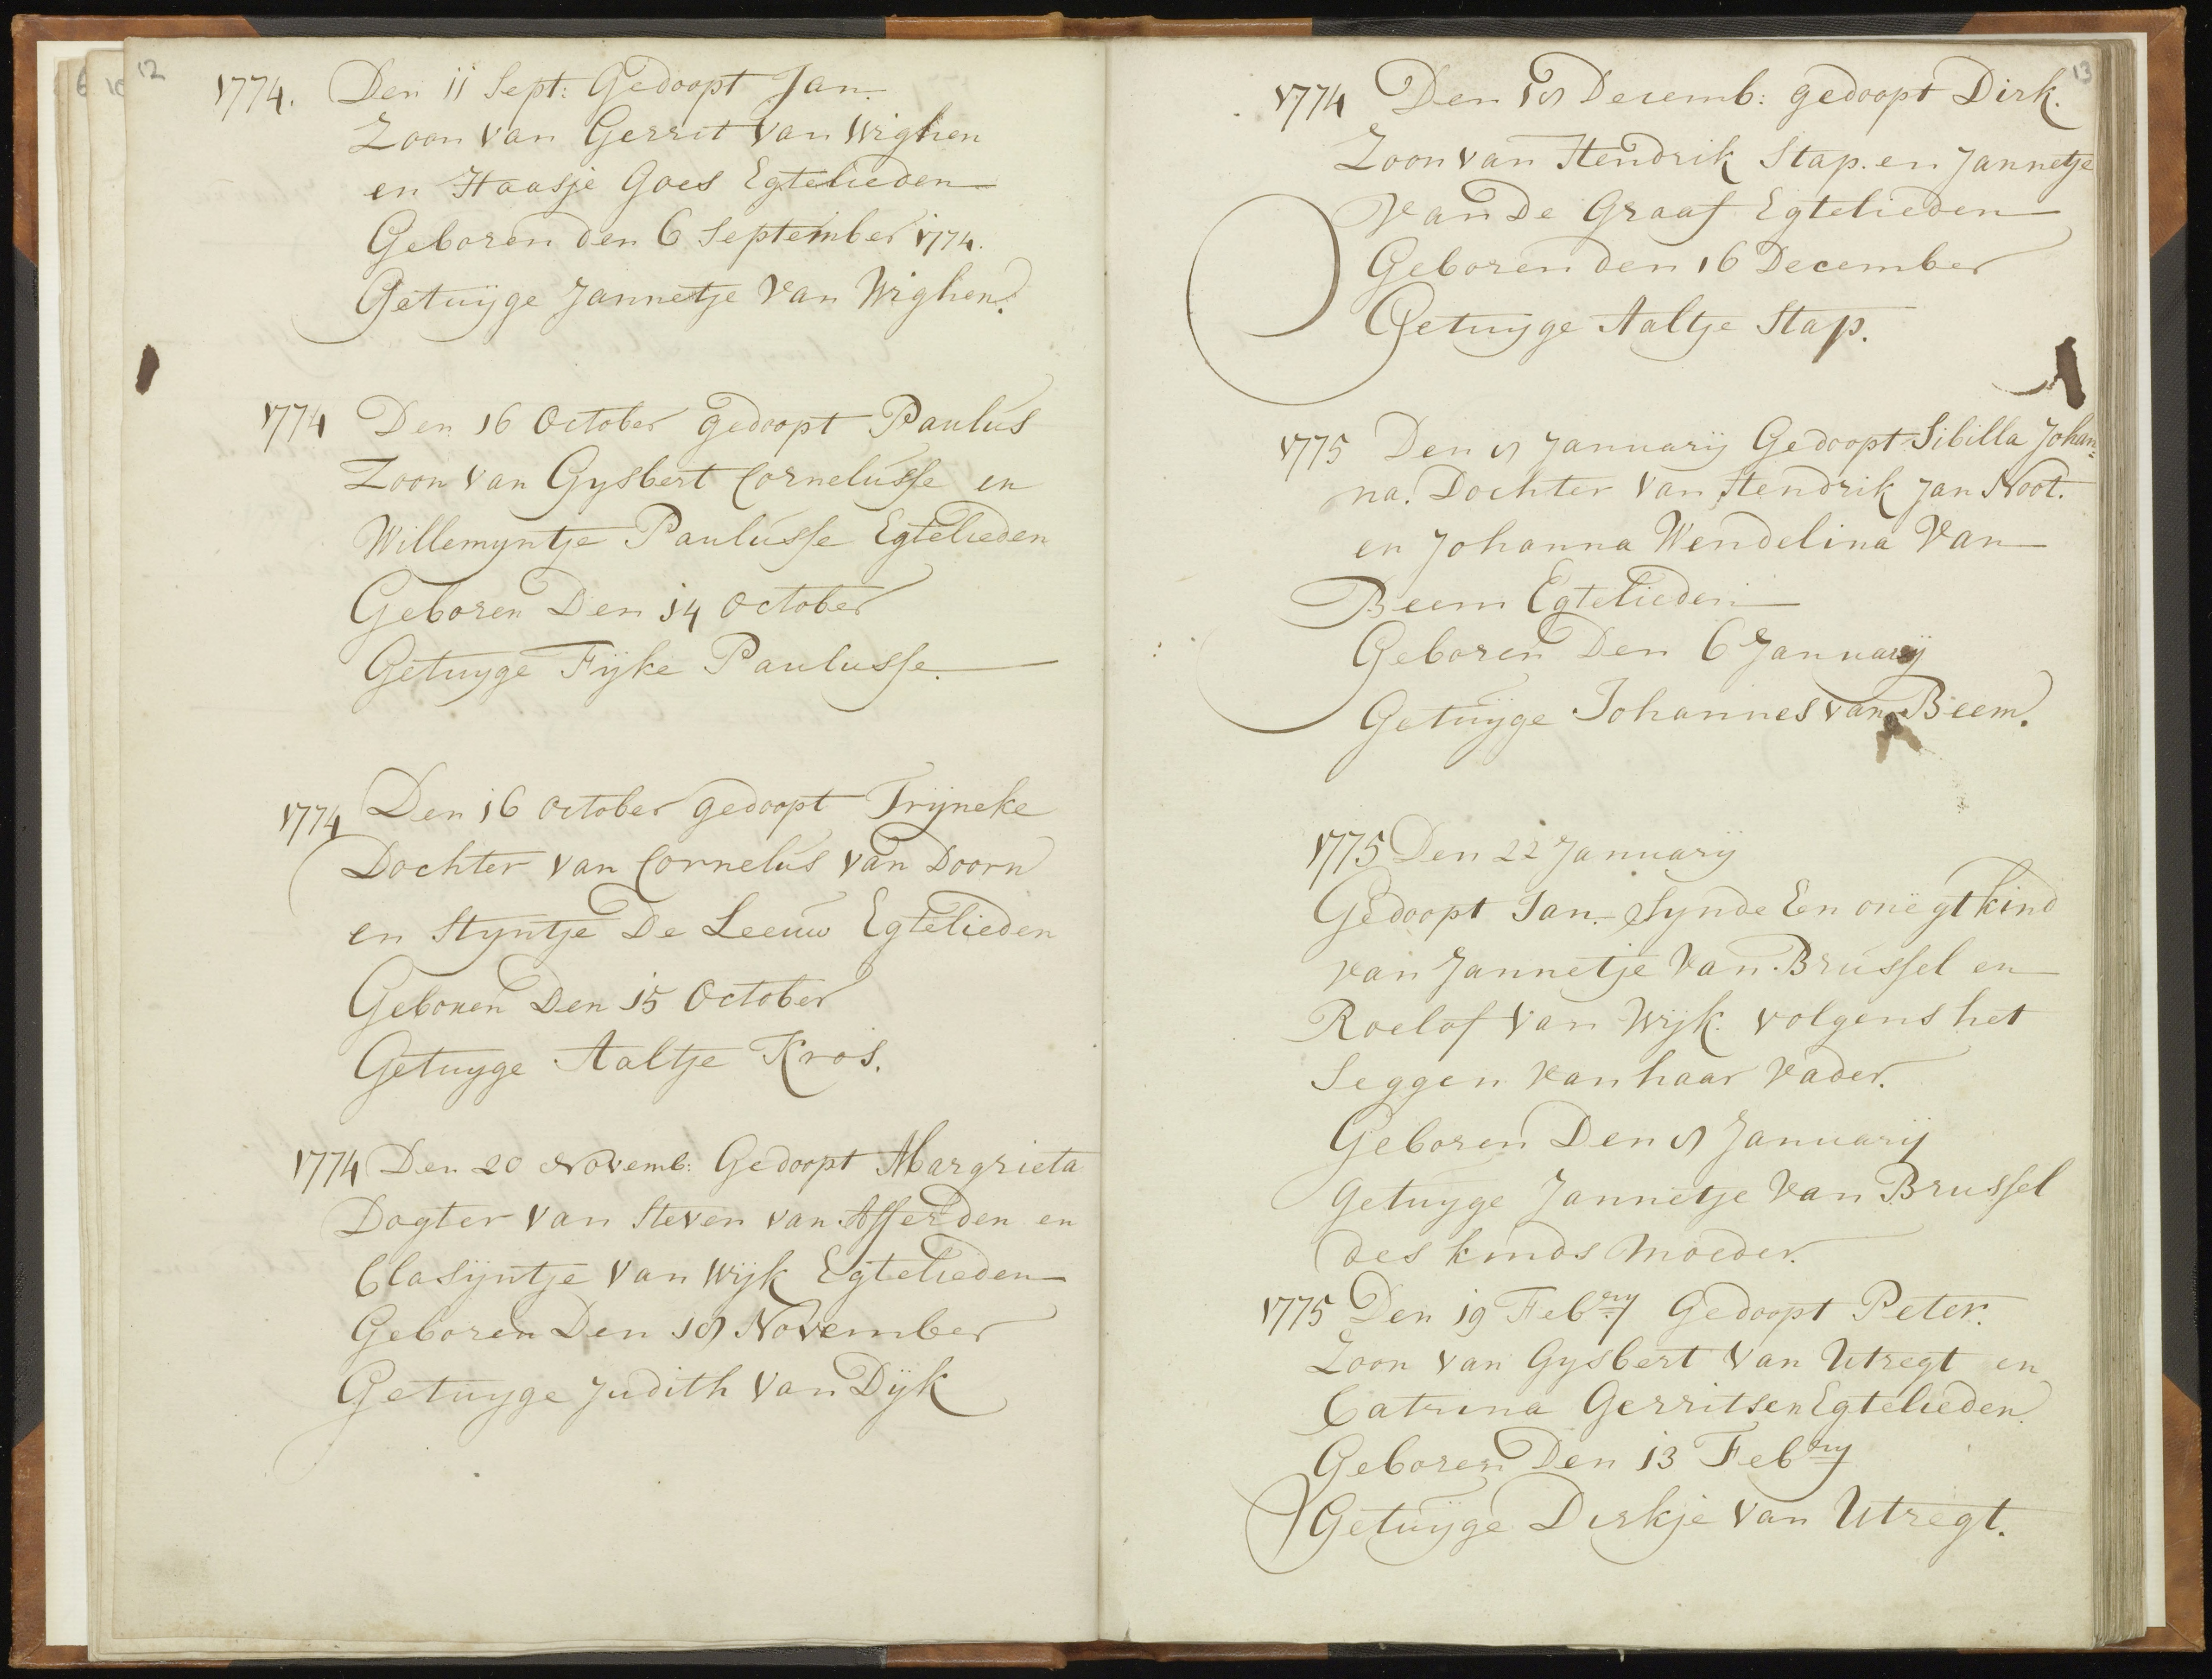 12
1774. Den 11 Sept: Gedoopt Jan.
Zoon van Gerrit van Wighen
en Haasje Goes Egtelieden
Geboren den 6 September 1774.
Getuijge Jannetje van Wighen.
1774 Den 16 October gedoopt Paulus
Zoon van Gysbert Cornelusse en
Willemyntje Paulusse Egtelieden
Geboren Den 14 October
Getuyge Fijke Paulusse.
1774 Den 16 October gedoopt Trijneke
Dochter van Cornelus van Doorn
en Styntje De Leeuw Egtelieden
Geboren Den 15 October
Getuyge Aaltje Kros.
1774 Den 20 Novemb: Gedoopt Margrieta
Dogter van Steven van Afferden en
Clasijntje van Wijk Egtelieden
Geboren Den 18 November
Getuyge Judith van Dijk
13
1774 Den 18 Decemb: gedoopt Dirk.
Zoon van Hendrik Stap. en Jannetje
van De Graaf Egtelieden
Geboren den 16 December
Getuyge Aaltje Stap.
1775 Den 8 Januarij Gedoopt Sibilla Johan:
na. Dochter van Hendrik Jan Noot.
en Johanna Wendelina van
Beem Egtelieden
Geboren Den 6 January
Getuijge Johannes van Beem.
1775 Den 22 Januarij
Gedoopt Jan. Synde Een onëgt kind
van Jannetje van Brussel en
Roelof van Wijk. volgens het
Seggen van haar vader.
Geboren Den 8 Januarij
Getuyge Jannetje van Brussel
des kinds Moeder.
1775 Den 19 Febry Gedoopt Peter.
Zoon van Gysbert van Utregt en
Catrina Gerritsen Egtelieden.
Geboren Den 13 Febry
Getuijge Dirkje van Utregt.